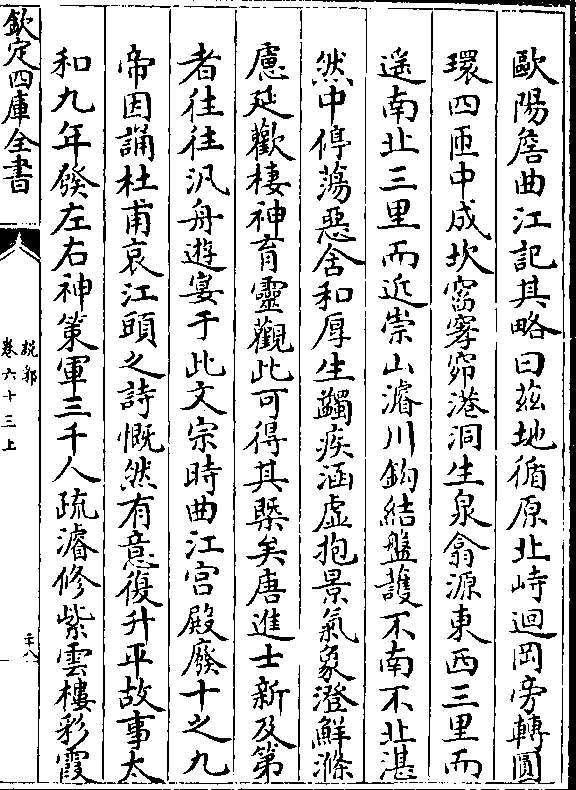 歐陽詹曲江記其略曰茲地循原北峙迴岡旁轉圓
環四匝中成坎窞窙窌港洞生泉翕源東西三里而
遥南北三里而近崇山濬川鈎結盤護不南不北湛
然中停蕩惡舍和厚生蠲疾涵虚抱景氣象澄鮮滌
慮延歡棲神育靈觀此可得其槩矣唐進士新及第
者往往汎舟遊宴于此文宗時曲江宫殿廢十之九
帝因誦杜甫哀江頭之詩慨然有意復升平故事太
和九年發左右神策軍三千人疏濬修紫雲樓彩霞
欽定四庫全書
説郛
卷六十三上